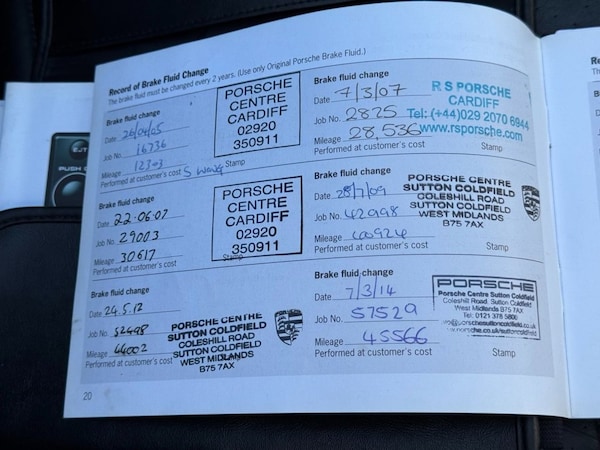 Record of Brake Fluid Change
The brake fluid must be changed every 2 years. (Use only Original Porsche Brake Fluid.)
Brake fluid change
Date 26/04/05
Job No. 16736
Mileage 12303
Performed at customer's cost
Stamp
PORSCHE
CENTRE
CARDIFF
02920
350911
Brake fluid change
Date 22.06.07
Job No. 29003
Mileage 30617
Performed at customer's cost
Stamp
PORSCHE
CENTRE
CARDIFF
02920
350911
Brake fluid change
Date 24.5.12
Job No. 52498
Mileage 44002
Performed at customer's cost
PORSCHE CENTRE
SUTTON COLDFIELD
COLESHILL ROAD
SUTTON COLDFIELD
WEST MIDLANDS
B75 7AX
20
Brake fluid change
Date 7/3/07
Job No. 2825
Mileage 28,536
Performed at customer's cost
Stamp
R S PORSCHE
CARDIFF
Tel: (+44)029 2070 6944
www.rsporsche.com
Brake fluid change
Date 28/7/09
Job No. 42998
Mileage 40924
Performed at customer's cost
Stamp
PORSCHE CENTRE
SUTTON COLDFIELD
COLESHILL ROAD
SUTTON COLDFIELD
WEST MIDLANDS
B75 7AX
Brake fluid change
Date 7/3/14
Job No. 57529
Mileage 45566
Performed at customer's cost
Stamp
PORSCHE
Porsche Centre Sutton Coldfield
Coleshill Road, Sutton Coldfield
West Midlands B75 7AX
Tel: 0121 378 5806